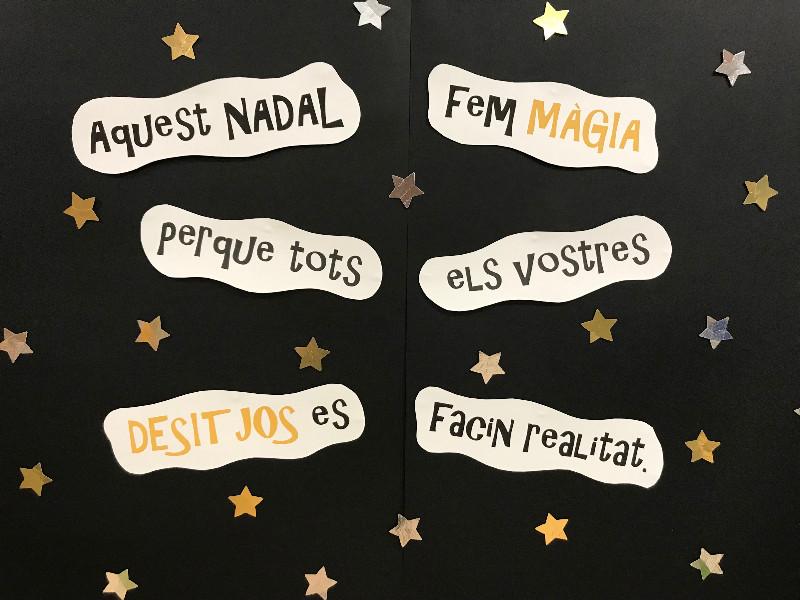 Aquest NADAL FeM MÀGIA
perque tots eLS vostres
DESITJOS es FaciN realitat.